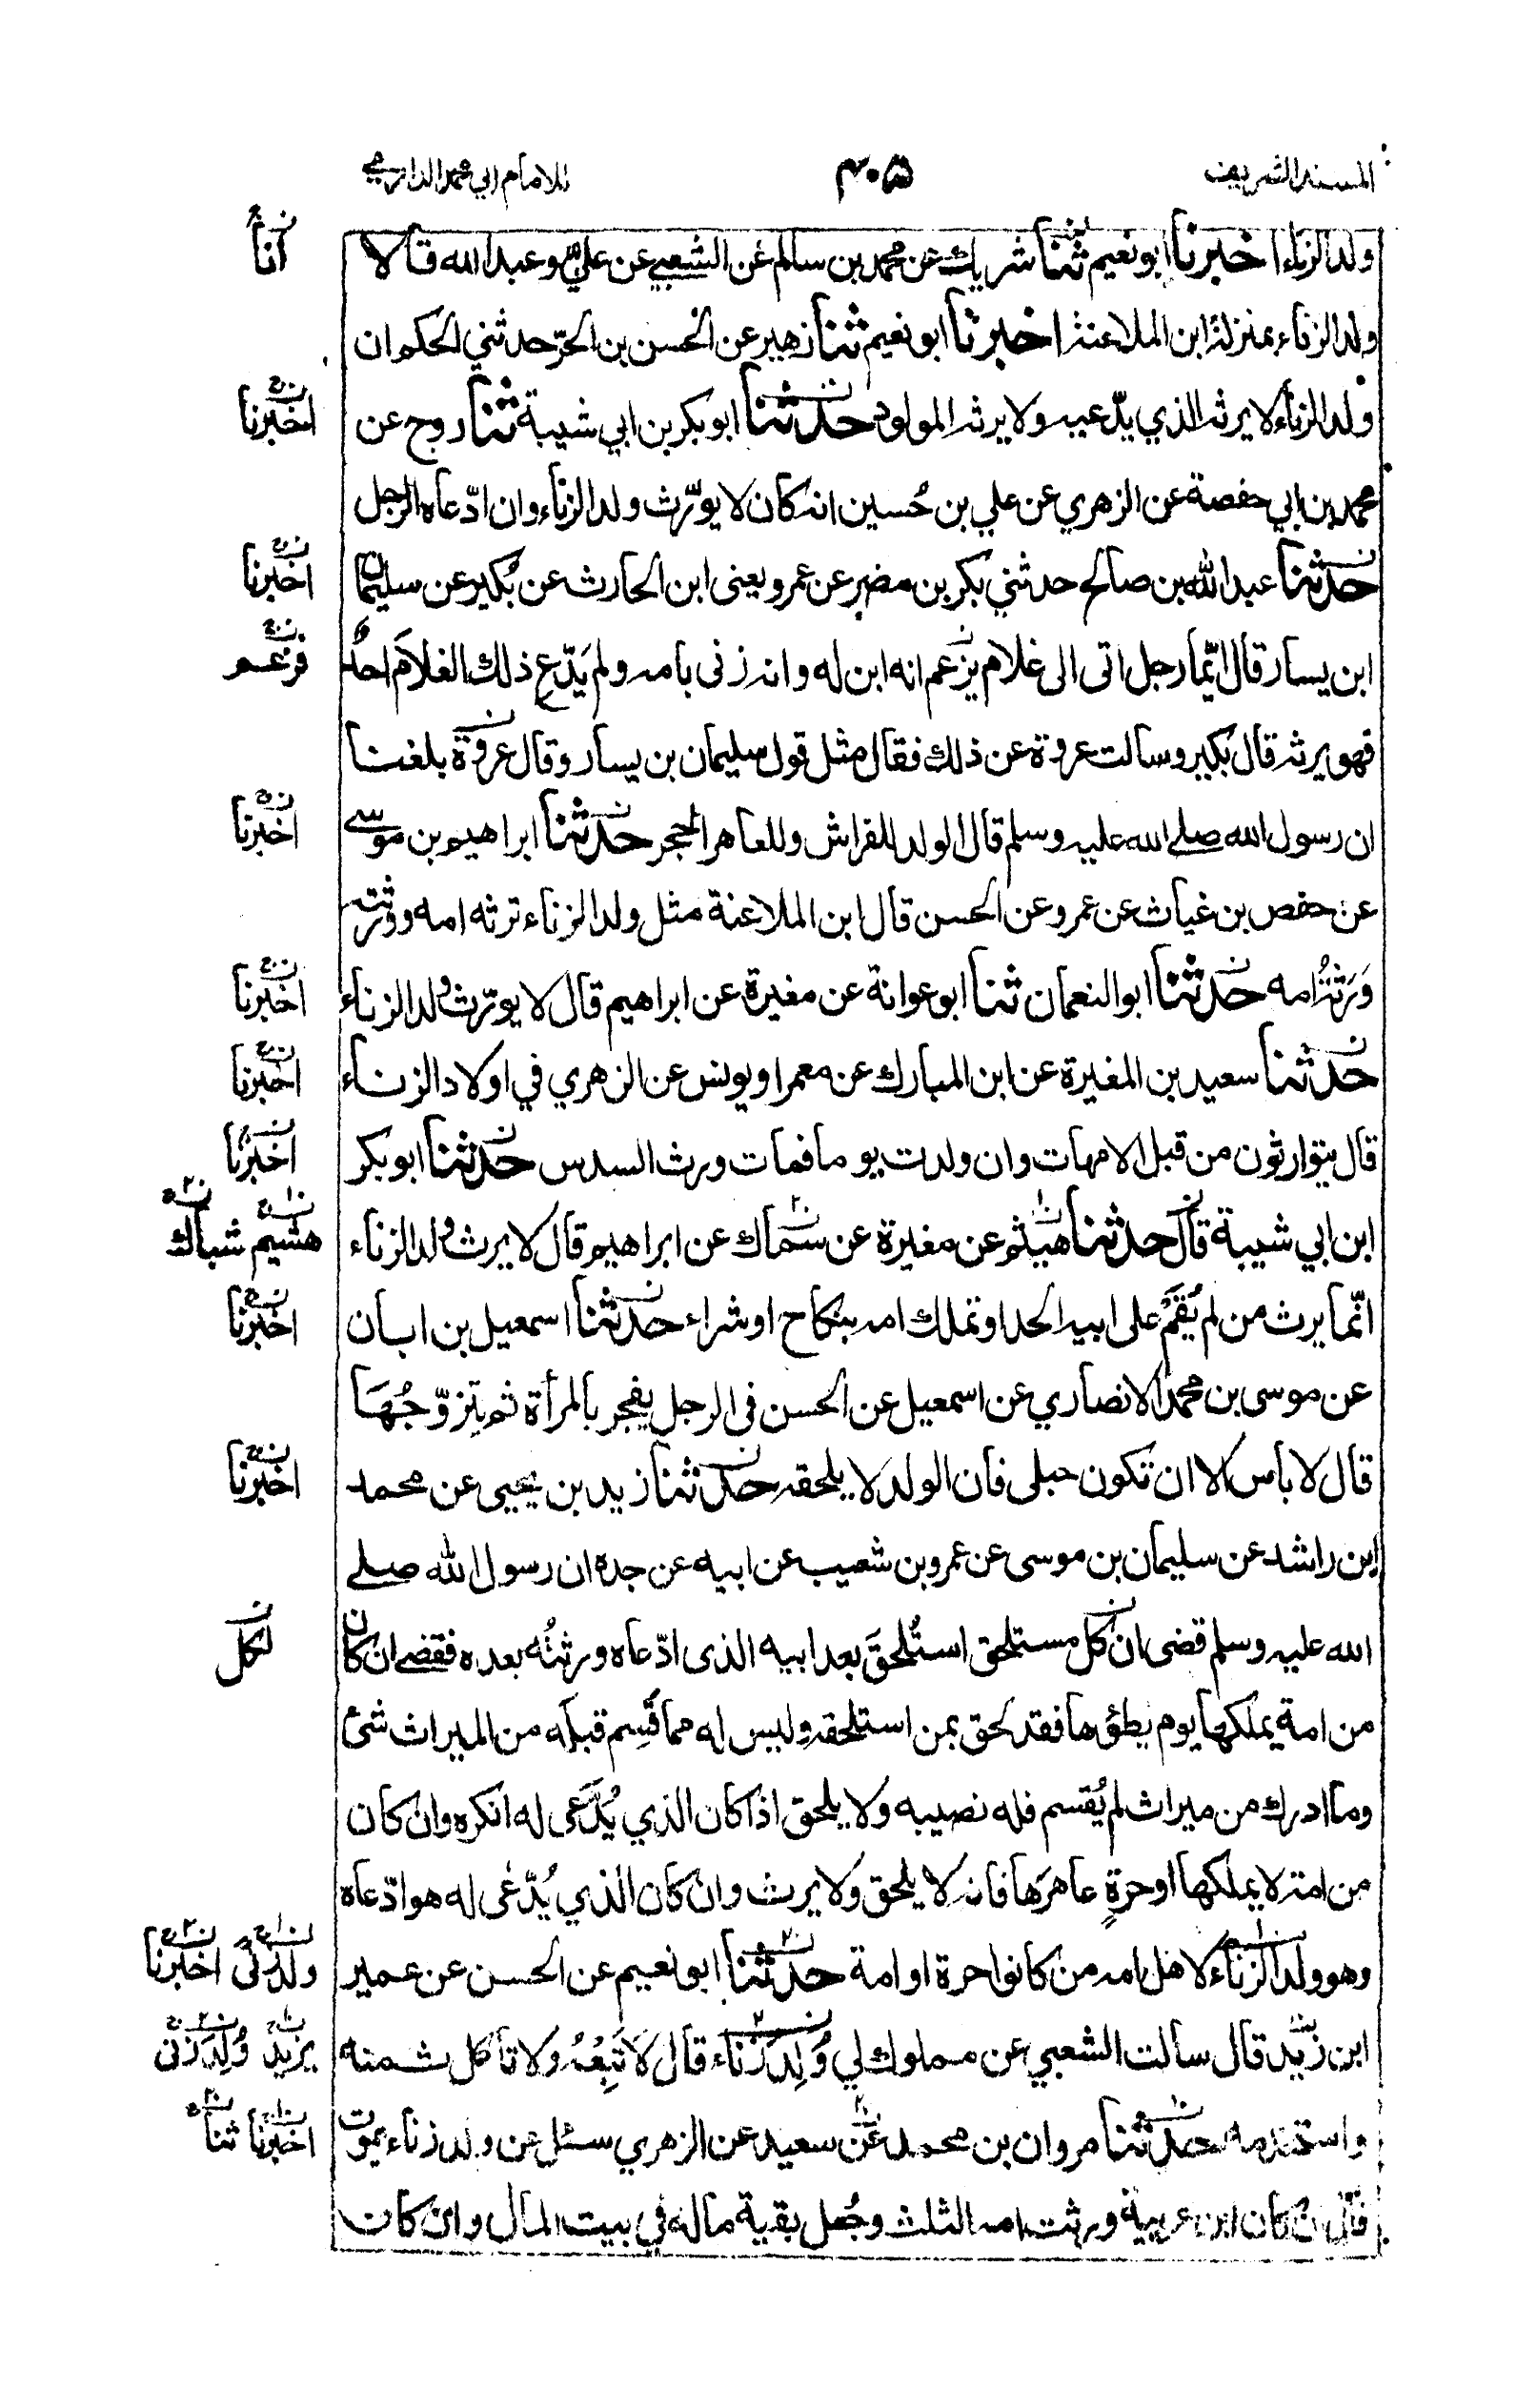 المسند الشريف
٤٠٥
للامام ابي محمد الدارمي
ولد الزناء اخبرنا ابو نعيم ثنا شريك عن محمد بن سالم عن الشعبي عن علي وعبد الله قالا
انا
ولد الزناء بمنزلة ابن الملاعنة اخبرنا ابو نعيم ثنا زهير عن الحسن بن الحرّ حدثني الحكم ان
ولد الزناء لا يرثه الذي يدّعيه ولا يرثه المولود حدثنا ابو بكر بن ابي شيبة ثنا روح عن
اخبرنا
محمد بن ابي حفصة عن الزهري عن علي بن حُسين انه كان لا يورّث ولد الزناء وان ادّعاه الرجل
حدثنا عبد الله بن صالح حدثني بكر بن مضر عن عمرو يعنى ابن الحارث عن بُكير عن سليمان
اخبرنا
ابن يسار قال ايّما رجل اتى الى غلام يزعم انه ابن له وانه زنى بامه ولم يَدّع ذلك الغلامَ احدٌ
فزعم
فهو يرثه قال بكير وسالت عروة عن ذلك فقال مثل قول سليمان بن يسار وقال عروة بلغنا
ان رسول الله صلے الله عليه وسلم قال الولد للفراش وللعاهر الحجر حدثنا ابراهيم بن موسے
اخبرنا
عن حفص بن غياث عن عمرو عن الحسن قال ابن الملاعنة مثل ولد الزناء ترثه امه وورثته
وَرَثَةُ امه حدثنا ابو النعمان ثنا ابو عوانة عن مغيرة عن ابراهيم قال لا يورّث ولد الزناء
اخبرنا
حدثنا سعيد بن المغيرة عن ابن المبارك عن معمر او يونس عن الزهري في اولاد الزناء
اخبرنا
قال يتوارثون من قبل الامهات وان ولدت يوما فمات ورث السدس حدثنا ابو بكر
اخبرنا
ابن ابي شيبة قال حدثنا هيثم عن مغيرة عن سماك عن ابراهيم قال لا يرث ولد الزناء
هشيم شباك
انّما يرث من لم يُقَمْ على ابيه الحد او تملك امه بنكاح او شراء حدثنا اسمعيل بن ابان
اخبرنا
عن موسى بن محمد الانصاري عن اسمعيل عن الحسن فى الرجل يفجر بالمرأة ثم يتزوّجُهَا
قال لا باس الا ان تكون حبلى فان الولد لا يلحقه حدثنا زيد بن يحيى عن محمد
اخبرنا
ابن راشد عن سليمان بن موسى عن عمرو بن شعيب عن ابيه عن جده ان رسول الله صلے
الله عليه وسلم قضى ان كل مستلحق استُلحقَ بعد ابيه الذى ادّعاه ورثتُه بعده فقضے ان كان
لكل
من امة يملكها يوم يطؤها فقد لحق بمن استلحقه وليس له مما قُسِم قبله من الميراث شئ
وما ادرك من ميراث لم يُقسم فله نصيبه ولا يلحق اذا كان الذي يُدَّعَى له انكره وان كان
من امته لا يملكها او حرةٍ عاهرَها فانه لا يلحق ولا يرث وان كان الذي يُدّعٰى له هو ادّعاه
وهو ولد الزناء لاهل امه من كانوا حرة او امة حدثنا ابو نعيم عن الحسن عن عمير
ولد زنى اخبرنا
ابن زيد قال سالت الشعبي عن مملوك لي وُلِد زناء قال لا تَبِعْهُ ولا تاكل ثمنه
يزيد وُلِدَ زنى
واستخدمه حدثنا مروان بن محمد عن سعيد عن الزهري سئل عن ولد زناء يموت
اخبرنا ثنا
قال ان كان ابن عربية ورثت امه الثلث وجُعل بقية ماله في بيت المال وان كان